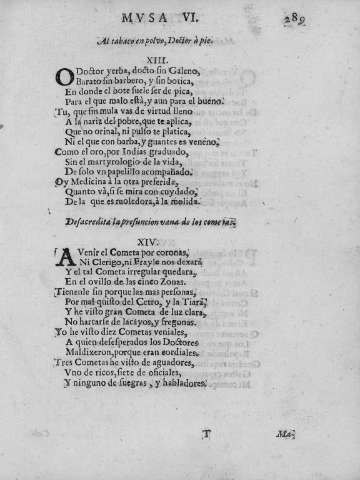 MVSA VI. 289
Al tabaco en polvo, Doctor à pie.
XIII.
O Doctor yerba, docto sin Galeno,
Barato sin barbero, y sin botica,
En donde el bote suele ser de pica,
Para el que malo està, y aun para el bueno.
Tu, que sin mula vas de virtud lleno
A la nariz del pobre, que te aplica,
Que no orinal, ni pulso te platica,
Ni el que con barba, y guantes es veneno.
Como el oro, por Indias graduado,
Sin el martyrologio de la vida,
De solo vn papelillo acompañado.
Oy Medicina à la otra preferida,
Quanto và, si se mira con cuydado,
De la que es moledora, à la molida.
Desacredita la presuncion vana de los cometas.
XIV.
A Venir el Cometa por coronas,
Ni Clerigo, ni Frayle nos dexàra
Y el tal Cometa irregular quedara,
En el ovillo de las cinco Zonas.
Tienenle sin porque las mas personas,
Por mal quisto del Cetro, y la Tiara,
Y he visto gran Cometa de luz clara,
No hartarse de lacayos, y fregonas.
Yo he visto diez Cometas veniales,
A quien desesperados los Doctores
Maldixeron, porque eran cordiales.
Tres Cometas he visto de aguadores,
Vno de ricos, siete de oficiales,
Y ninguno de suegras, y habladores.
T Ma-